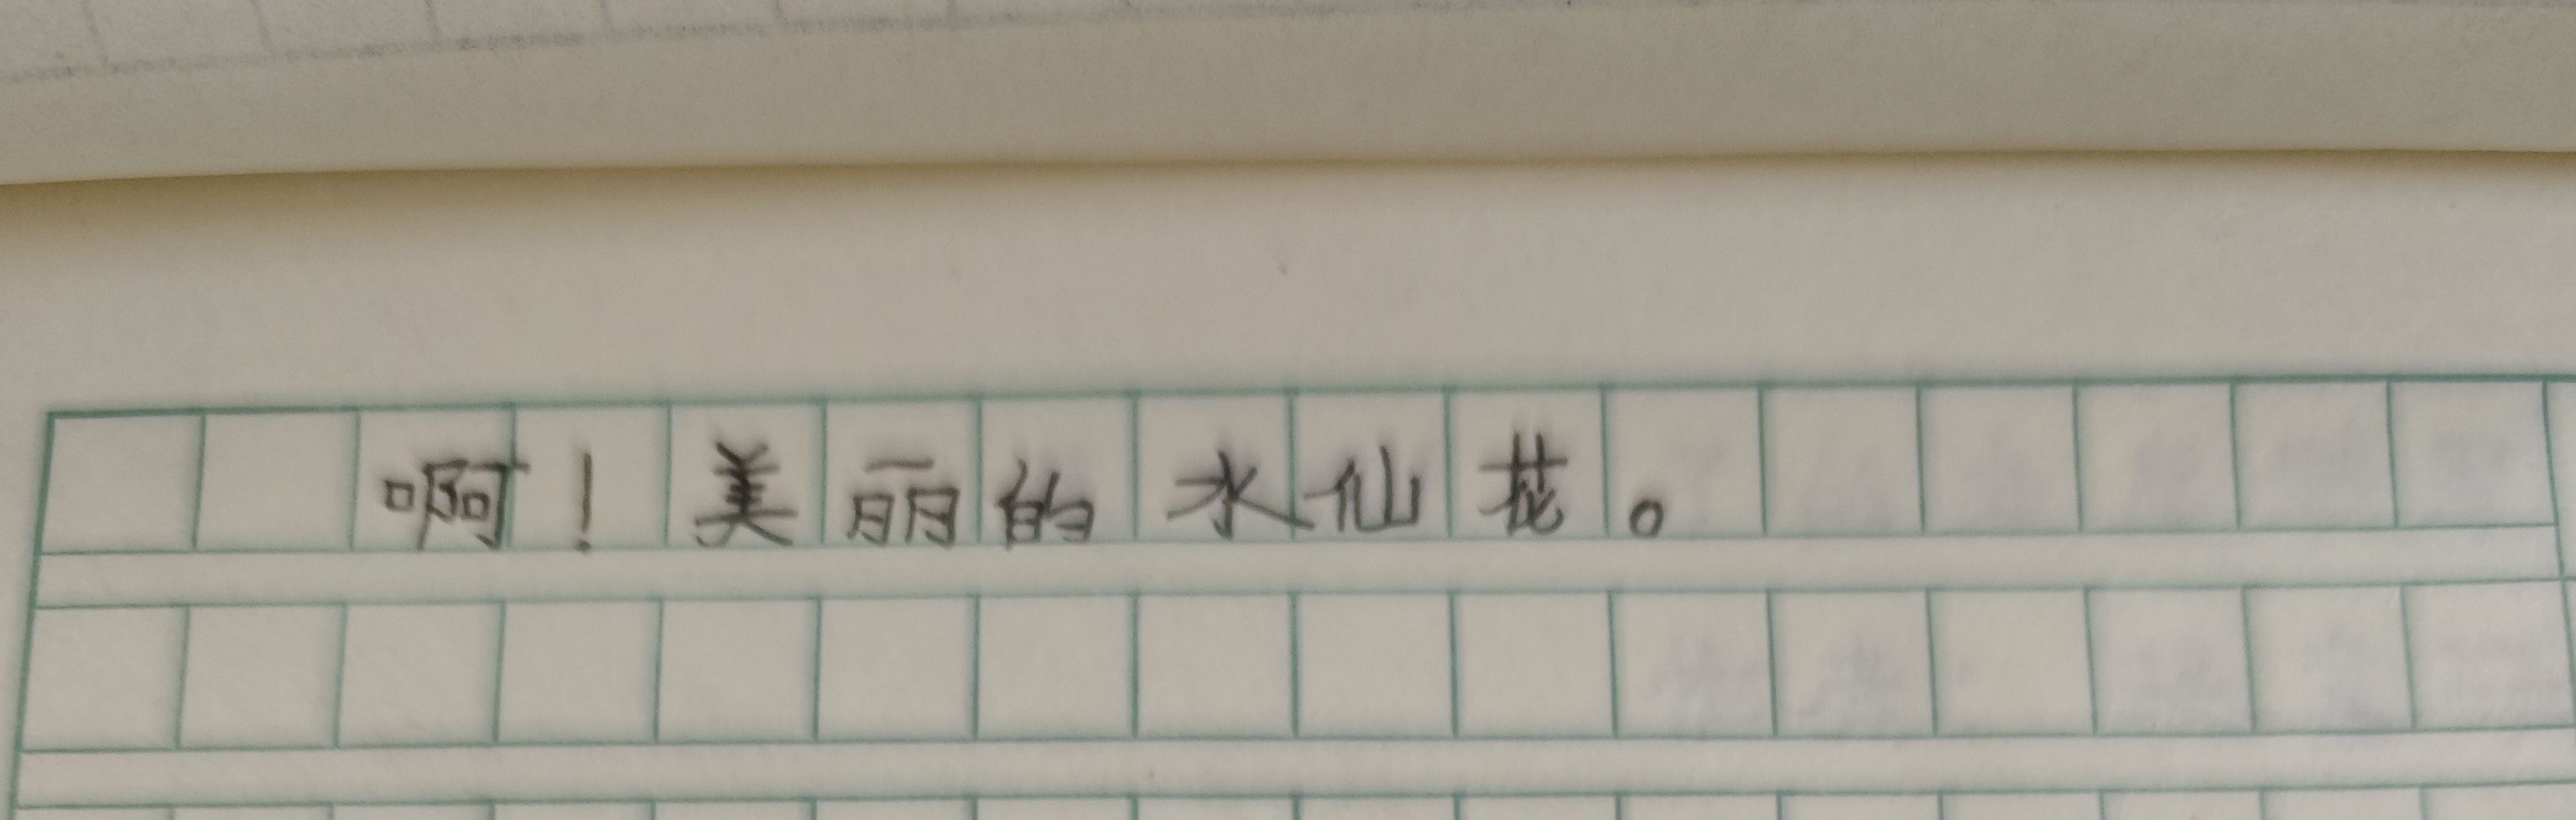 啊！美丽的水仙花。